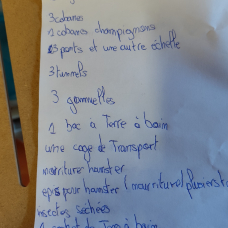 3 cabanes
1 cabane champignons
3 ponts et une autre échelle
3 tunnels
3 gamelles
1 bac à Terre à bain
une cage de Transport
nourriture hamster
pour hamster (nourriture
insectes séchées
à bain